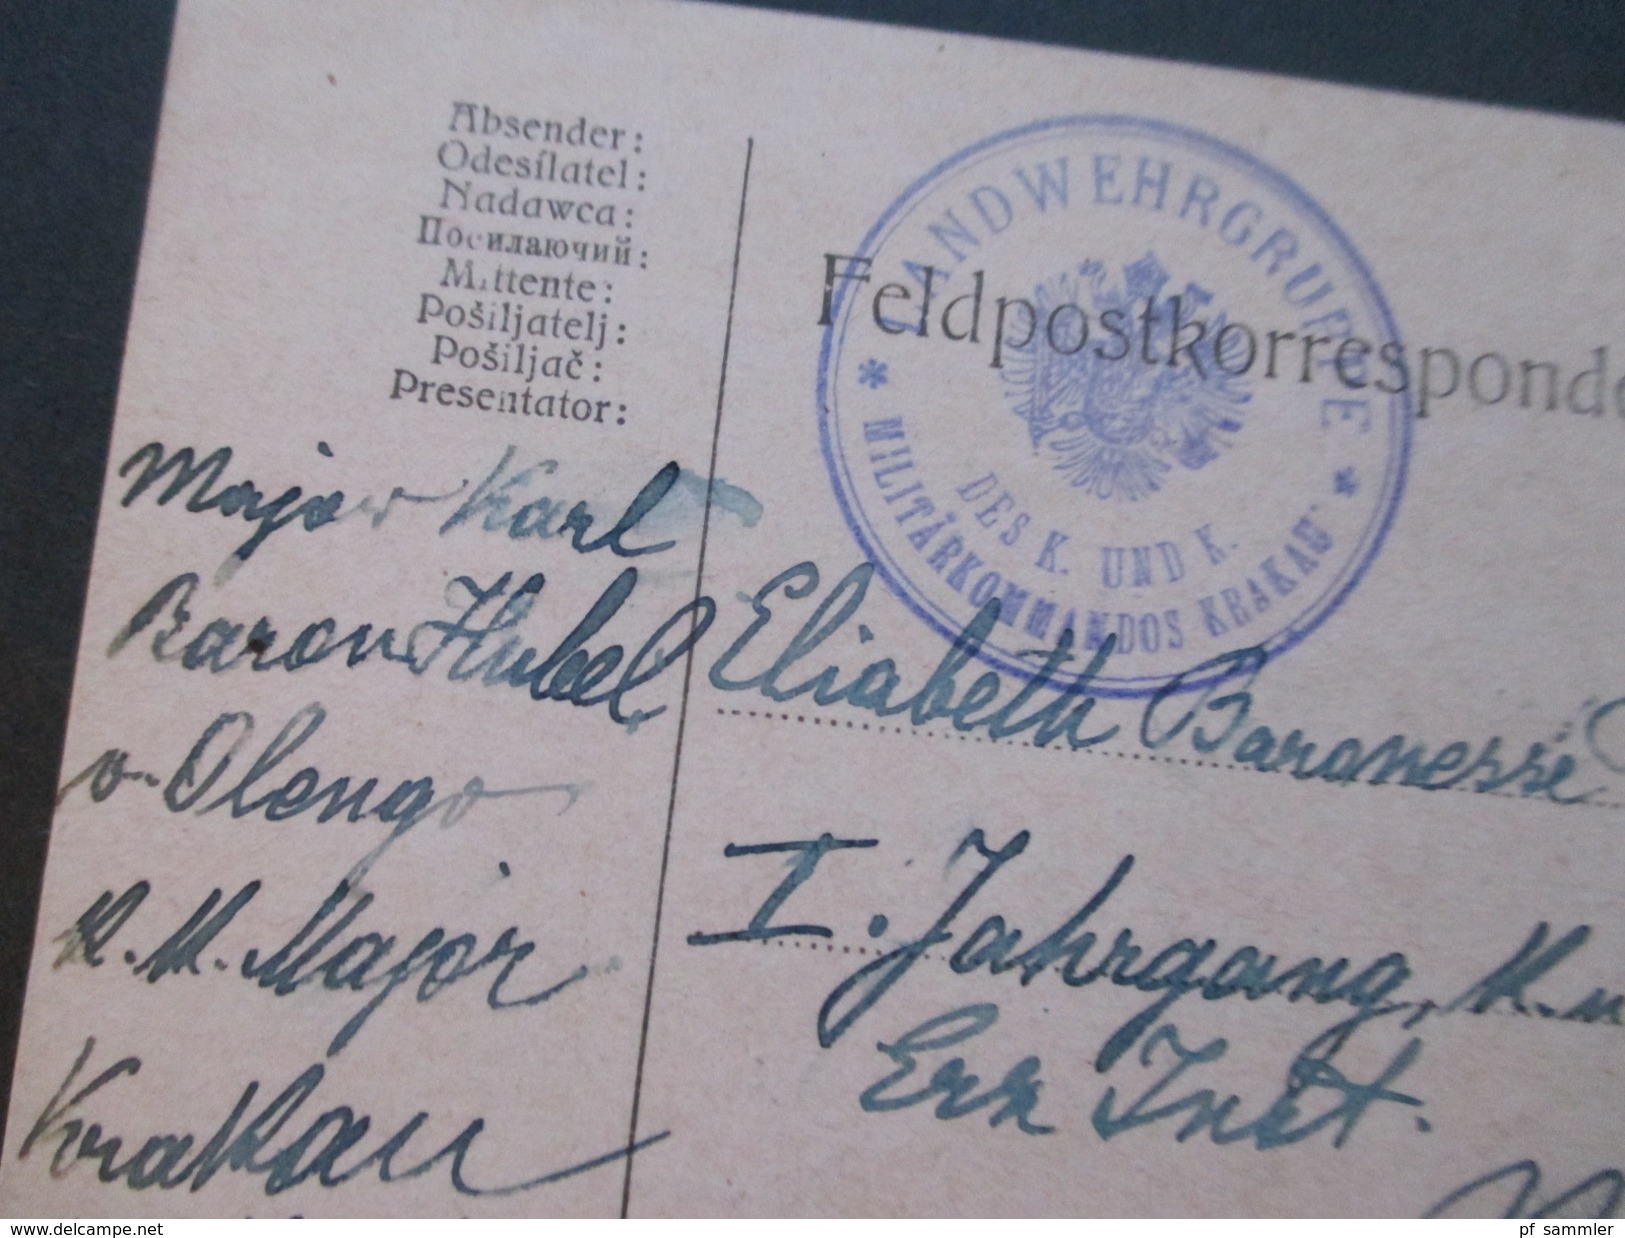 Absender:
Odesílatel:
Nadawca:
Посилаючий:
Mittente:
Pošiljatelj:
Pošiljač:
Presentator:
Major Karl
Baron Hubel
v. Olengo
K. K. Major
Krakau
LANDWEHRGRUPPE
DES K. UND K.
* MILITÄRKOMMANDOS KRAKAU *
Feldpostkorresponde
Elisabeth Baronesse
I. Jahrgang, K. u
Erz Inst.
www.delcampe.net
pf_sammler